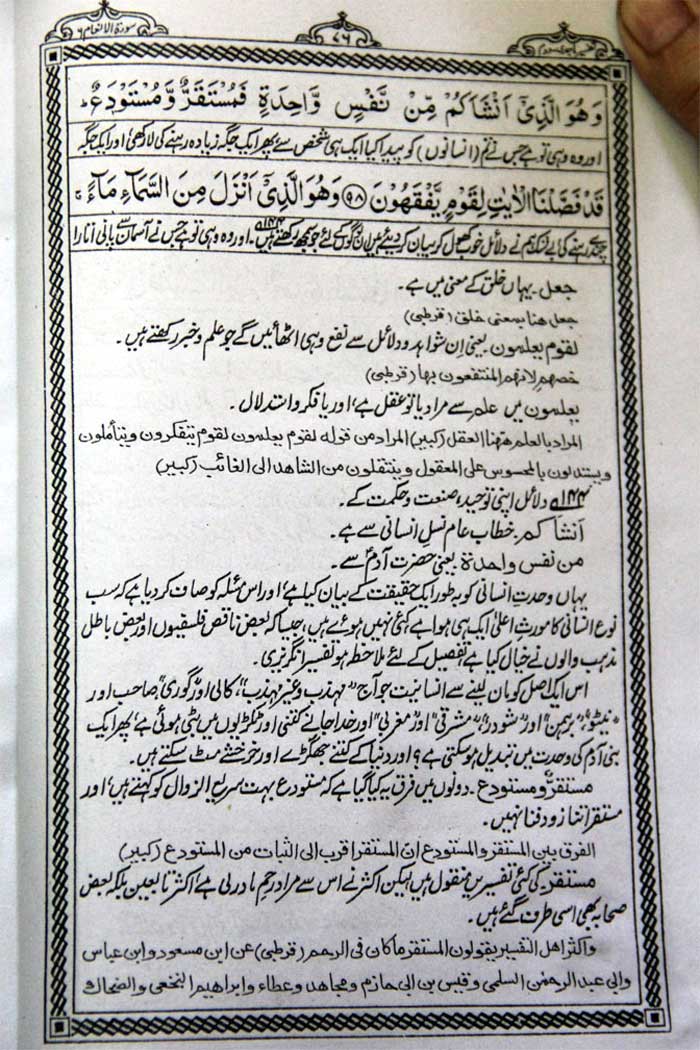 سورة الانعام ۶
۷۶
تفسیر ماجدی سوم
وَهُوَ الَّذِیْۤ اَنْشَاَكُمْ مِّنْ نَّفْسٍ وَّاحِدَةٍ فَمُسْتَقَرٌّ وَّمُسْتَوْدَعٌ ؕ
اور وہ وہی تو ہے جس نے تم (انسانوں) کو پیدا کیا ایک ہی شخص سے پھر ایک جگہ زیادہ رہنے کی لا رکھی اور ایک جگہ
قَدْ فَصَّلْنَا الْاٰیٰتِ لِقَوْمٍ یَّفْقَهُوْنَ ۹۸ وَهُوَ الَّذِیْۤ اَنْزَلَ مِنَ السَّمَآءِ مَآءً ۚ
چندے رہنے کی بے شک ہم نے دلائل خوب کھول کر بیان کر دیئے ہیں ان لوگوں کے لئے جو سمجھ رکھتے ہیں ۱۴۴۔ اور وہ وہی تو ہے جس نے آسمان سے پانی اتارا
جعل۔ یہاں خلق کے معنی میں ہے۔
جعل هنا بمعنى خلق (قرطبی)
لقوم یعلمون۔ یعنی اِن شواہد و دلائل سے نفع وہی اٹھائیں گے جو علم و خبر رکھتے ہیں۔
خصهم لانهم المنتفعون بها (قرطبی)
یعلمون میں علم سے مراد یا تو عقل ہے، اور یا فکر و استدلال۔
المراد بالعلم ههنا العقل (کبیر) المراد من قوله لقوم یعلمون لقوم یتفکرون ویتأملون
ویستدلون بالمحسوس علی المعقول وینتقلون من الشاهد الی الغائب (کبیر)
۱۴۴ دلائل اپنی توحید، صنعت و حکمت کے۔
اَنشاکم۔ خطاب عام نسل انسانی سے ہے۔
من نفس واحدة یعنی حضرت آدمؑ سے۔
یہاں وحدتِ انسانی کو بہ طور ایک حقیقت کے بیان کیا ہے، اور اس مسئلہ کو صاف کر دیا ہے کہ سب
نوع انسانی کا مورثِ اعلیٰ ایک ہی ہوا ہے کئی نہیں ہوئے ہیں، جیسا کہ بعض ناقص فلسفیوں اور بعض باطل
مذہب والوں نے خیال کیا ہے، تفصیل کے لئے ملاحظہ ہو تفسیر انگریزی۔
اس ایک اصل کو مان لینے سے انسانیت جو آج "مہذب و غیر مہذب"، "کالی اور گوری"، "صاحب اور
نیٹو"، "برہمن" اور "شودر"، "مشرقی" اور "مغربی" اور خدا جانے کتنی اور ٹکڑیوں میں بٹی ہوئی ہے، پھر ایک
بنی آدم کی وحدت میں تبدیل ہو سکتی ہے؟ اور دنیا کے کتنے جھگڑے اور خرخشے مٹ سکتے ہیں۔
مستقرٌ و مستودع۔ دونوں میں فرق یہ کیا گیا ہے کہ مستودع بہت سریع الزوال کو کہتے ہیں، اور
مستقر اتنا زود فنا نہیں۔
الفرق بین المستقر والمستودع انّ المستقر اقرب الی الثبات من المستودع (کبیر)
مستقر۔ کی کئی تفسیریں منقول ہیں لیکن اکثر نے اس سے مراد رحمِ مادر لی ہے، اکثر تابعین بلکہ بعض
صحابہ بھی اسی طرف گئے ہیں۔
واکثر اهل التفسیر یقولون المستقر ما کان فی الرحم (قرطبی) عن ابن مسعود وابن عباس
وابی عبد الرحمٰن السلمی وقیس بن ابی حازم ومجاهد وعطاء وابراهیم النخعی والضحاك